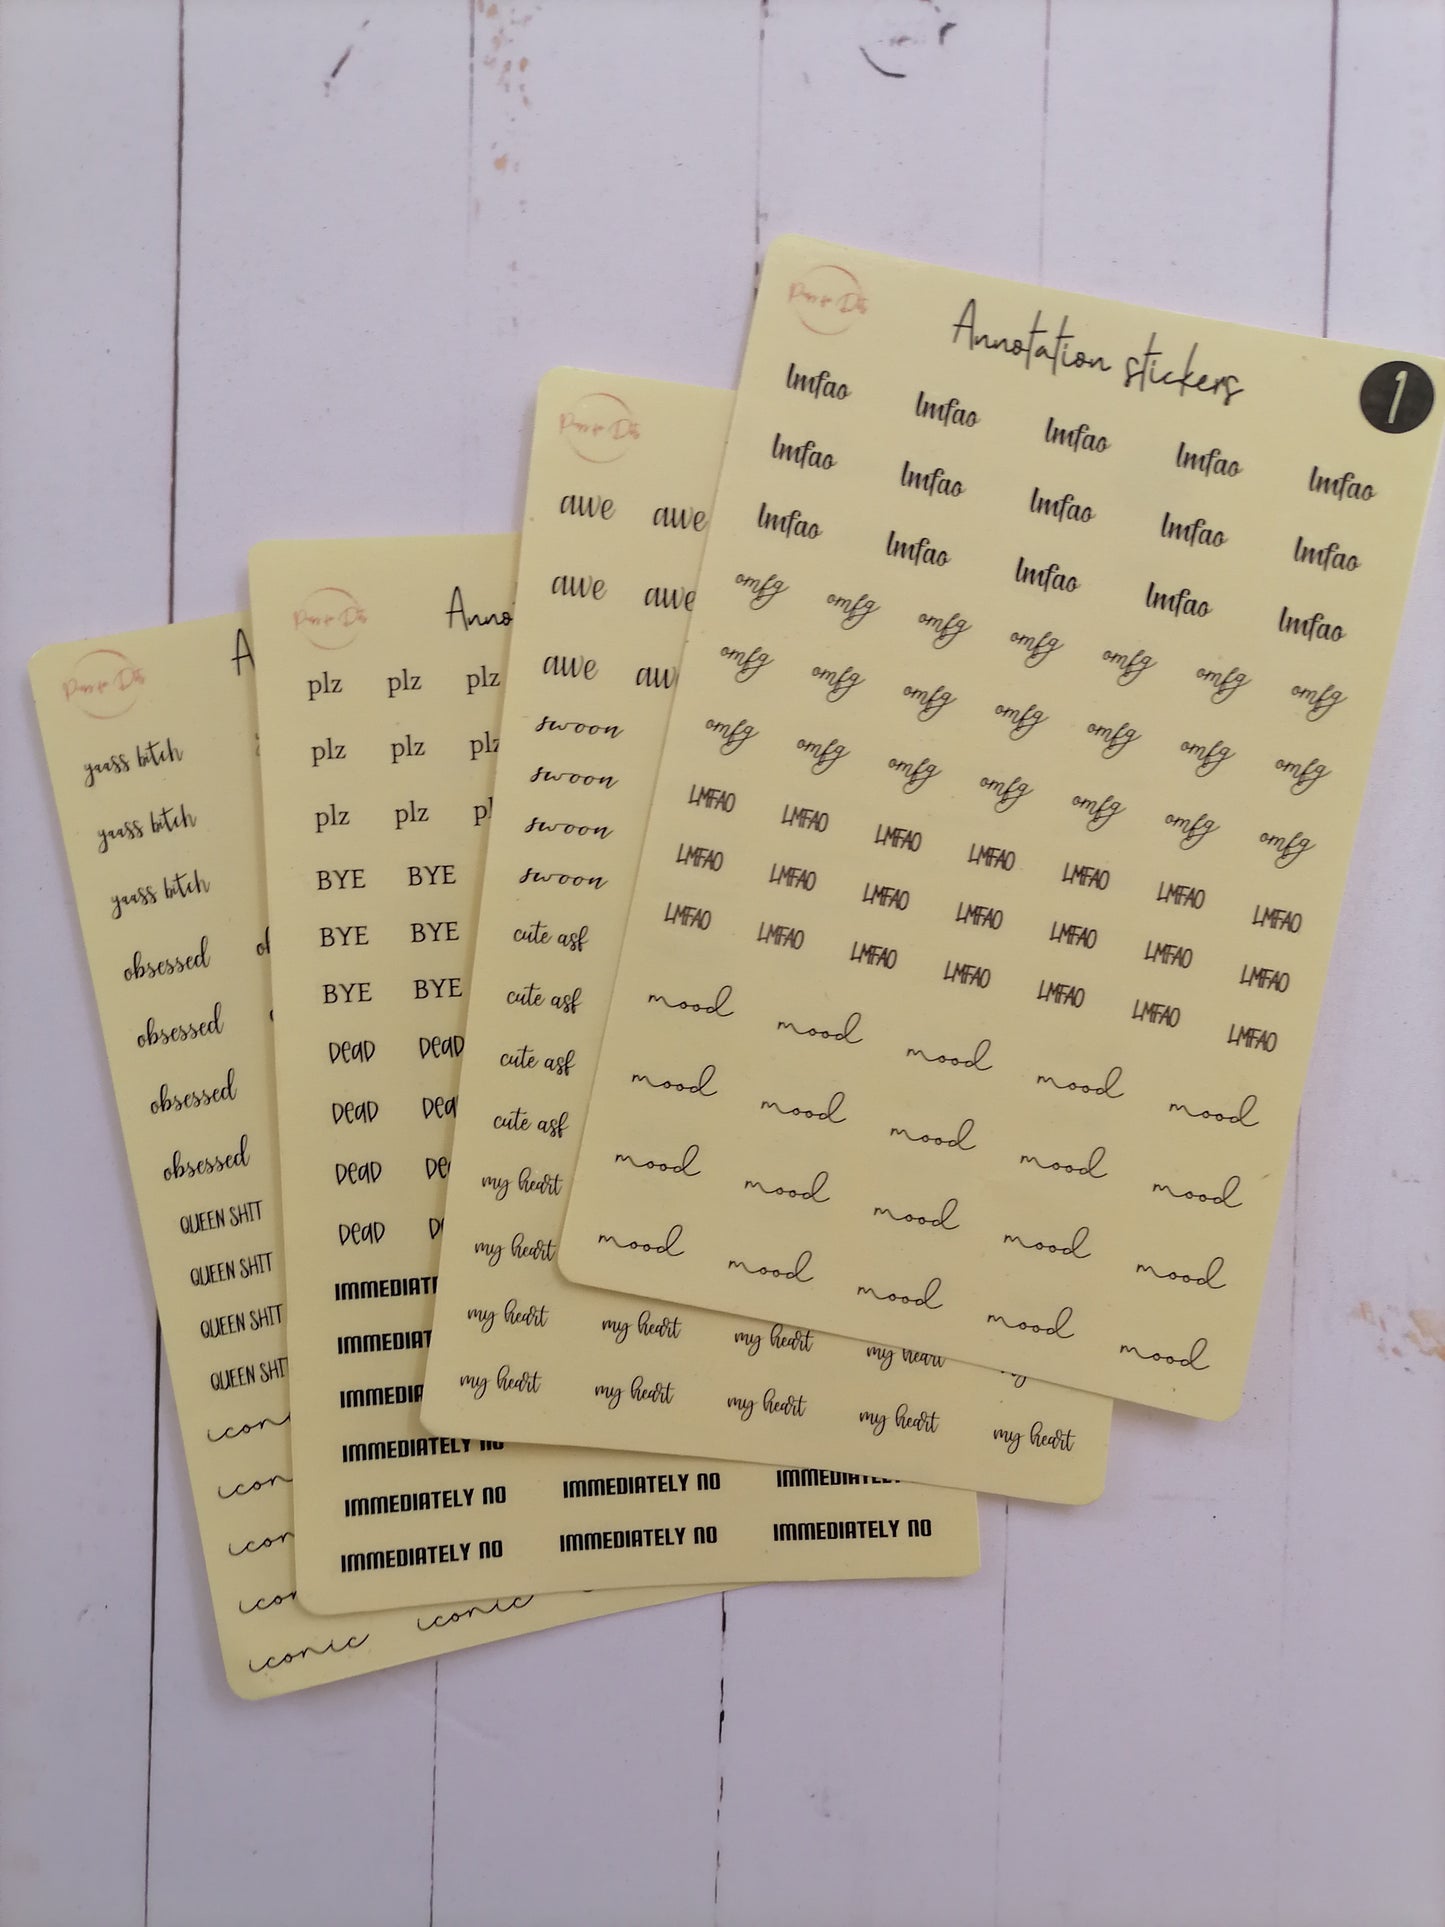 Annotation stickers
1
lmfao lmfao lmfao lmfao lmfao
lmfao lmfao lmfao lmfao lmfao
lmfao lmfao lmfao lmfao lmfao
omfg omfg omfg omfg omfg omfg omfg
omfg omfg omfg omfg omfg omfg omfg
omfg omfg omfg omfg omfg omfg omfg
LMFAO LMFAO LMFAO LMFAO LMFAO LMFAO LMFAO
LMFAO LMFAO LMFAO LMFAO LMFAO LMFAO LMFAO
LMFAO LMFAO LMFAO LMFAO LMFAO LMFAO LMFAO
mood mood mood mood mood
mood mood mood mood mood
mood mood mood mood mood
mood mood mood mood mood
awe awe
awe awe
awe aw
swoon
swoon
swoon
swoon
cute asf
cute asf
cute asf
cute asf
my heart
my heart
my heart my heart my heart my heart
my heart my heart my heart my heart my heart
Anno
plz plz plz
plz plz plz
plz plz pl
BYE BYE
BYE BYE
BYE BYE
DeaD DeaD
DeaD Dea
DeaD De
DeaD D
IMMEDIATE
IMMEDIAT
IMMEDIA
IMMEDIATELY NO
IMMEDIATELY NO IMMEDIATELY NO IMMEDIATEL
IMMEDIATELY NO IMMEDIATELY NO IMMEDIATELY NO
A
yaass bitch
yaass bitch
yaass bitch
obsessed ob
obsessed
obsessed
obsessed
QUEEN SHIT
QUEEN SHIT
QUEEN SHIT
QUEEN SHIT
icon
icon
icon
icon iconic
iconic